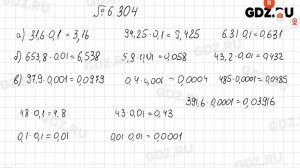 GDZ.RU
№ 6.304
а) 31,6·0,1 = 3,16   94,25·0,1 = 9,425   6,31·0,1 = 0,631
б) 653,8·0,01 = 6,538   5,8·0,01 = 0,058   43,2·0,01 = 0,432
в) 97,9·0,001 = 0,0979   0,4·0,001 = 0,0004   485·0,0001 = 0,0485
391,6·0,0001 = 0,03916
48·0,1 = 4,8   43·0,01 = 0,43
0,1·0,1 = 0,01   0,01·0,01 = 0,0001